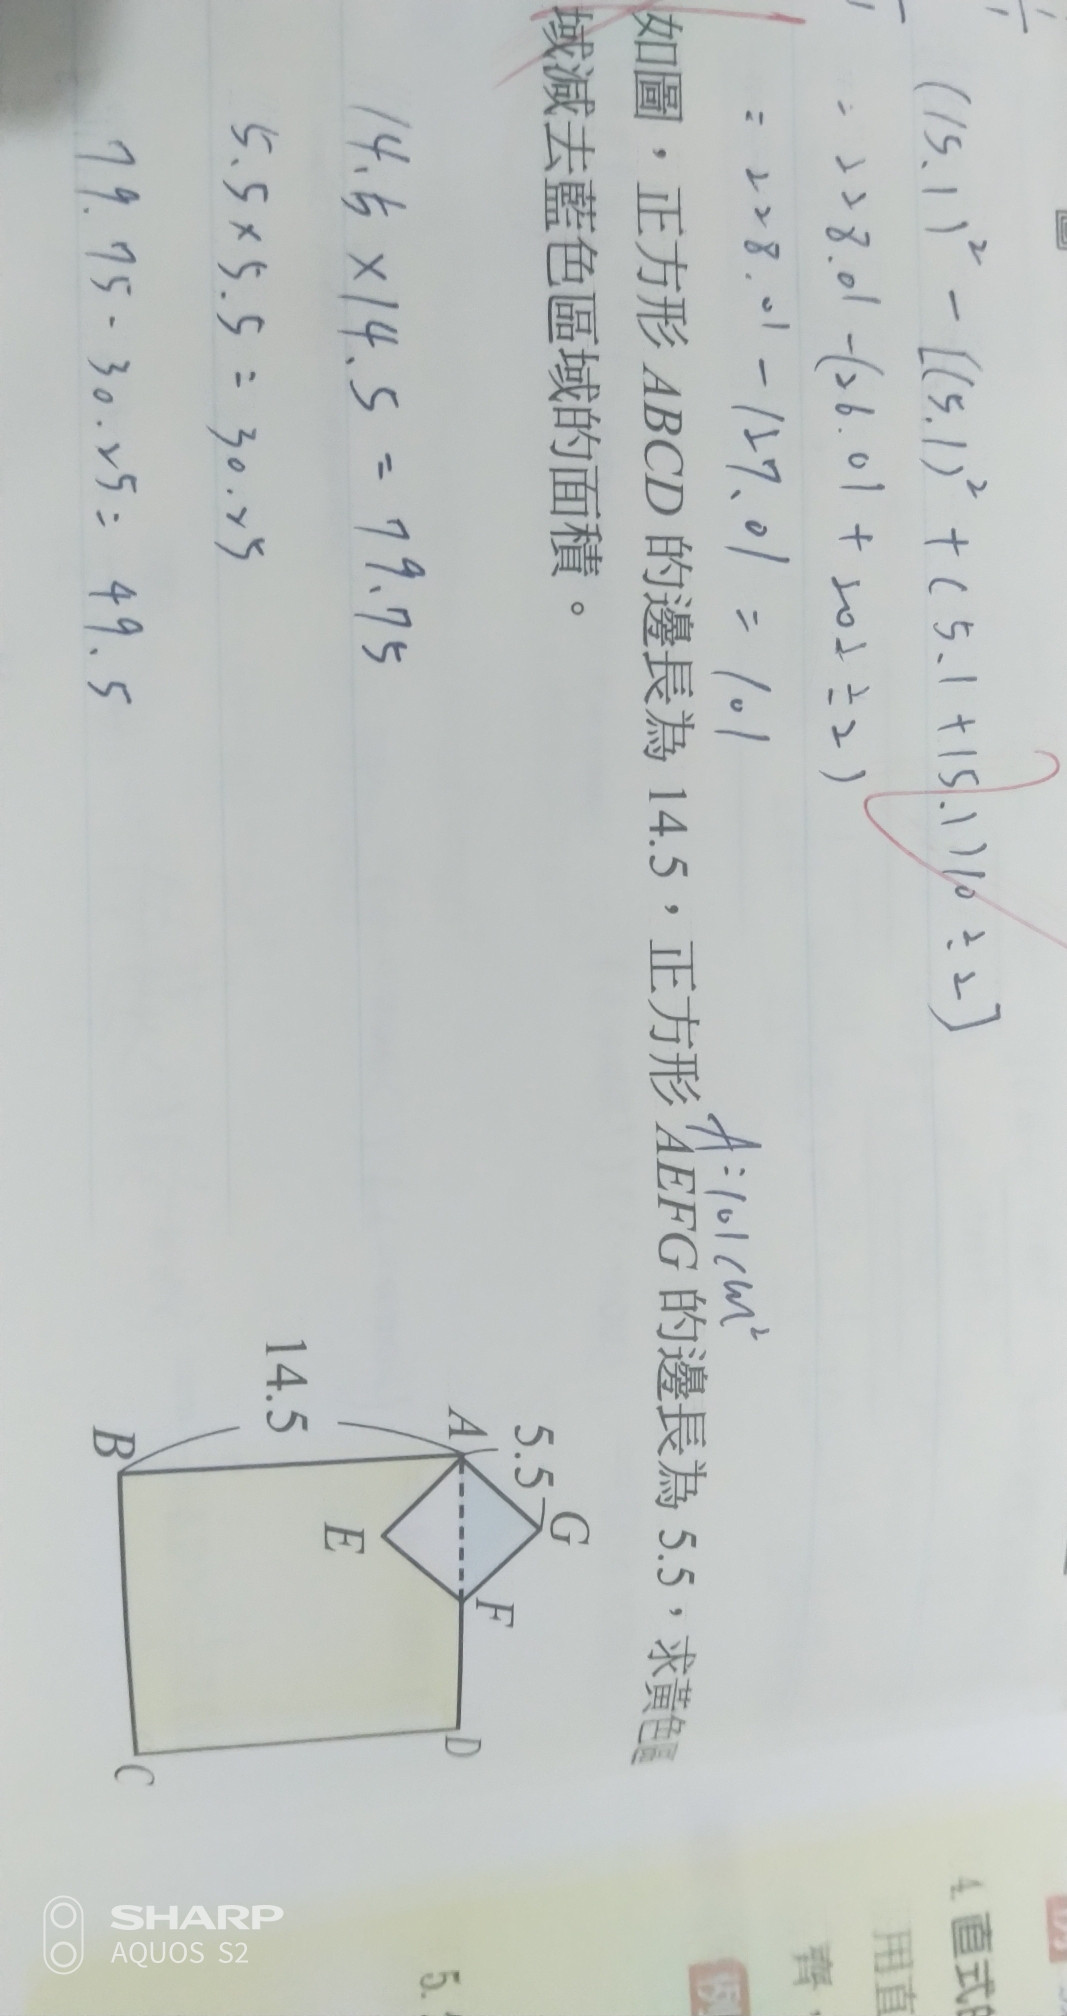 (15.1)² - [(5.1)² + (5.1+15.1)10÷2]
= 228.01 - (26.01 + 202÷2)
= 228.01 - 127.01 = 101
A:101cm²
如圖，正方形 ABCD 的邊長為 14.5，正方形 AEFG 的邊長為 5.5，求黃色區
域減去藍色區域的面積。
14.5 × 14.5 = 79.75
5.5 × 5.5 = 30.25
79.75 - 30.25 = 49.5
5.5
G
A
F
D
14.5
E
B
C
4. 直式
用直
5.
SHARP
AQUOS S2